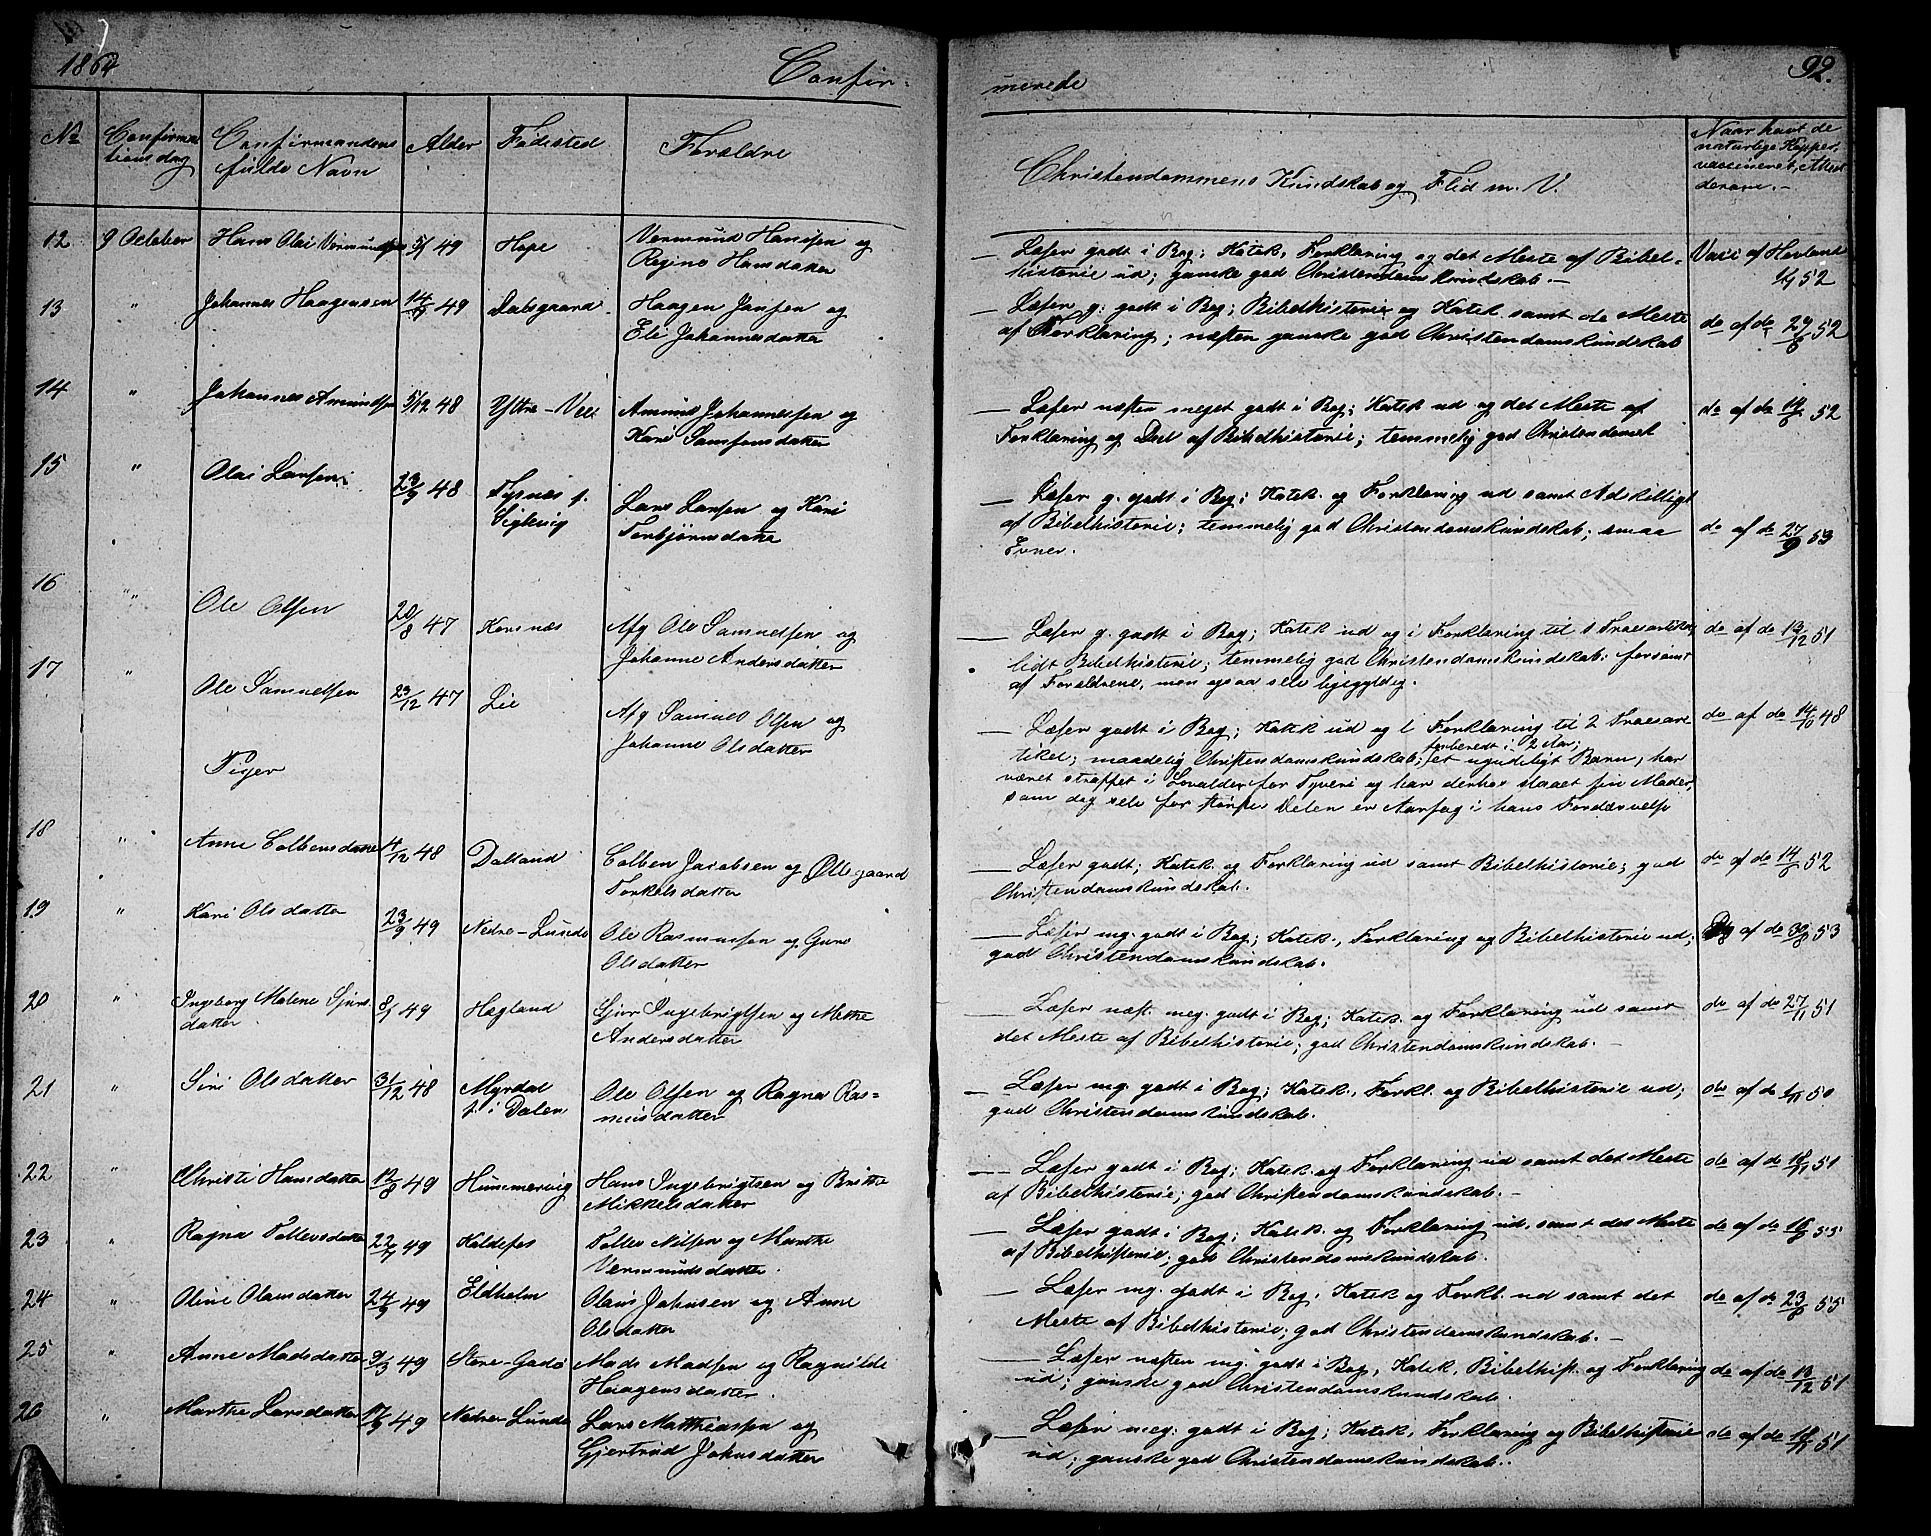 1864
Confir-
merede
92.
No
Confirmationsdag
Confirmandens fulde Navn
Alder
Fødested
Forældre
Christendommens Kundskab og Flid m. V.
Naar havt de
naturlige Kopper,
vaccineret, Attest
derom.-
12 9 October Hans Olai Vermundsen 5/1 49 Hope Vermund Hansen og
Regine Hansdatter
— Læser godt i Bog; Katek, Forklaring og det Meste af Bibel-
historie ud; ganske god Christendoms Kundskab.-
52
13 " Johannes Haagensen 14/9 49 Dalsgaard Haagen Jansen og
Eli Johannesdatter
— Læser g. godt i Bog; Bibelhistorie og Katek. samt de Meste
af Forklaring; næsten ganske god Christendomskundskab
do af do 29/6 52
14 " Johannes Amundsen 5/12 48 Yttre-Vest Amund Johannessen og
Kari Samsonsdatter
— Læser næsten meget godt i Bog; Katek ud og det Meste af
Forklaring og Deel af Bibelhistorie; temmelig god Christendomsk
do af do 52
15 " Olai Larsen 23/9 48 Tysnæs f.
Sigtevig
Lars Larsen og Kari
Torbjørnsdatter
— Læser g. godt i Bog; Katek. og Forklaring ud samt Adskilligt
af Bibelhistorie; temmelig god Christendomskundskab; smaa
Evner.
do af do 27/9 53
16 " Ole Olsen 20/8 47 Korsnæs Afg Ole Samuelsen og
Johanne Andersdatter
— Læser g. godt i Bog; Katek ud og i Forklaring til 1 Troesartikel,
lidt Bibelhistorie; temmelig god Christendomskundskab; forsømt
af Forældrene, men ogsaa selv ligegyldig.
do af do 13/12 51
17 " Ole Samuelsen 23/12 47 Lie Afg Samuel Olsen og
Johanne Olsdatter
— Læser godt i Bog; Katek ud og i Forklaring til 2 Troesar-
tikel; maadelig Christendomskundskab; forberedt i 2 Aar; et ugudeligt Barn, har
været straffet i Lovalder for Tyveri og har derhos slaaet sin Moder,
som dog selv for største Delen er Aarsag i hans Fordærvelse
do af do 48
Piger
18 " Anne Colbensdatter 4/12 48 Dalland Colben Jacobsen og Ollegaard
Torkelsdatter
— Læser godt; Katek. og Forklaring ud samt Bibelhistorie; god
Christendomskundskab.
do af do 14/6 52
19 " Kari Olsdatter 23/9 49 Nedre-Lunde Ole Rasmussen og Guro
Olsdatter
— Læser mg. godt i Bog; Katek., Forklaring og Bibelhistorie ud;
god Christendomskundskab.
af do 30/8 53
20 " Ingeborg Malene Sjurs-
datter
8/1 49 Hagland Sjur Ingebrigtsen og Mette
Andersdatter
— Læser næst. meg. godt i Bog; Katek. og Forklaring ud samt
det Meste af Bibelhistorie; god Christendomskundskab.-
do af do 27/11 51
21 " Siri Olsdatter 31/12 48 Myrdal
f. i Dalen
Ole Olsen og Ragna Ras-
musdatter
— Læser mg. godt i Bog; Katek., Forkl. og Bibelhistorie ud;
god Christendomskundskab.
do af do 50
22 " Christi Hansdatter 12/8 49 Hummervig Hans Ingebrigtsen og Britte
Mikkelsdatter
— Læser godt i Bog; Katek. og Forklaring ud samt det Meste
af Bibelhistorie; god Christendomskundskab.-
do af do 51
23 " Ragna Tollevsdatter 49 Koldefos Tollev Nilsen og Marthe
Vermundsdatter.
— Læser godt i Bog; Katek. og Forklaring ud, samt det Meste
af Bibelhistorie; god Christendomskundskab.
do af do 55
24 " Oline Olausdatter 49 Eldholm Olaus Johnsen og Anne
Olsdatter
— Læser mg. godt i Bog, Katek og Forkl. ud samt det
Meste af Bibelhistorie; god Christendomskundskab.-
do af do 23/8 55
25 " Anne Madsdatter 9/3 49 Store-Godø Mads Madsen og Ragnilde
Haagensdatter.
— Læser næsten mg. godt i Bog, Katek, Bibelhist. og Forklaring
ud; ganske god Christendomskundskab.
do af do 12/12 51
26 " Marthe Larsdatter 49 Nedre-Lunde Lars Matthiassen og
Gjertrud Johnsdatter
— Læser meg. godt i Bog; Katek, Forklaring og Bibelhistorie
ud; ganske god Christendomskundskab.
do af do 51